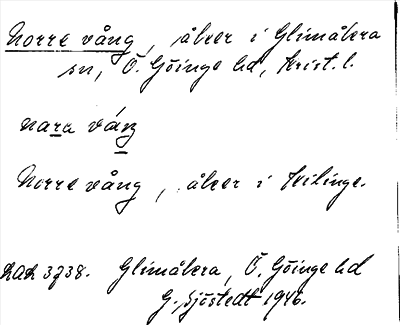 Norre vång, åker i Glimåkra
sn, Ö. Göinge hd, Krist. l.
nara váŋ
Norre vång, åker i Kilinge.
3738. Glimåkra, Ö. Göinge hd
G. Sjöstedt 1946.